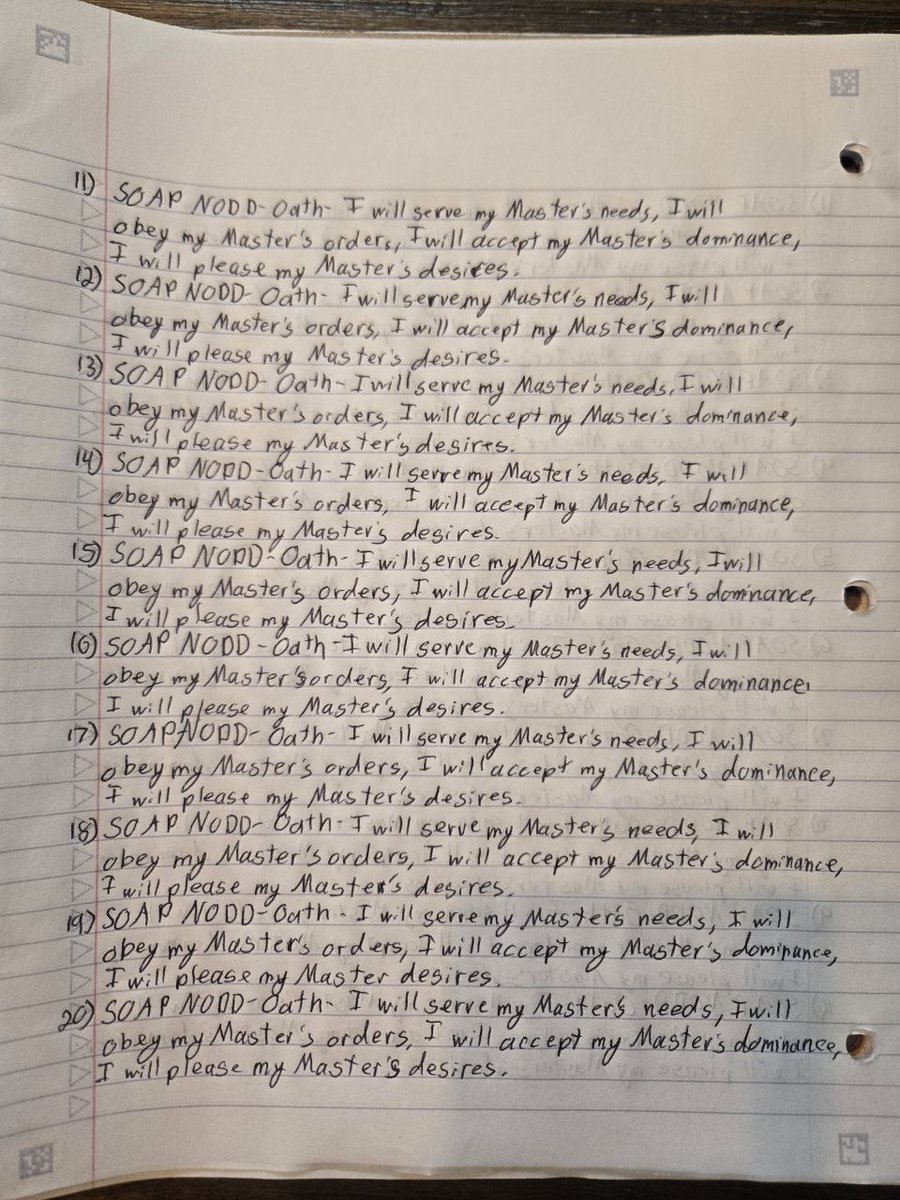 11) SOAP NODD-Oath- I will serve my Master's needs, I will
obey my Master's orders, I will accept my Master's dominance,
I will please my Master's desires.
12) SOAP NODD- Oath- I will serve my Master's needs, I will
obey my Master's orders, I will accept my Master's dominance,
I will please my Master's desires.
13) SOAP NODD- Oath- I will serve my Master's needs, I will
obey my Master's orders, I will accept my Master's dominance,
I will please my Master's desires.
14) SOAP NODD-Oath- I will serve my Master's needs, I will
obey my Master's orders, I will accept my Master's dominance,
I will please my Master's desires.
15) SOAP NODD- Oath- I will serve my Master's needs, I will
obey my Master's orders, I will accept my Master's dominance,
I will please my Master's desires.
16) SOAP NODD - Oath - I will serve my Master's needs, I will
obey my Master's orders, I will accept my Master's dominance,
I will please my Master's desires.
17) SOAP NODD- Oath- I will serve my Master's needs, I will
obey my Master's orders, I will accept my Master's dominance,
I will please my Master's desires.
18) SOAP NODD- Oath- I will serve my Master's needs, I will
obey my Master's orders, I will accept my Master's dominance,
I will please my Master's desires.
19) SOAP NODD-Oath - I will serve my Master's needs, I will
obey my Master's orders, I will accept my Master's dominance,
I will please my Master desires.
20) SOAP NODD-Oath- I will serve my Master's needs, I will
obey my Master's orders, I will accept my Master's dominance,
I will please my Master's desires.